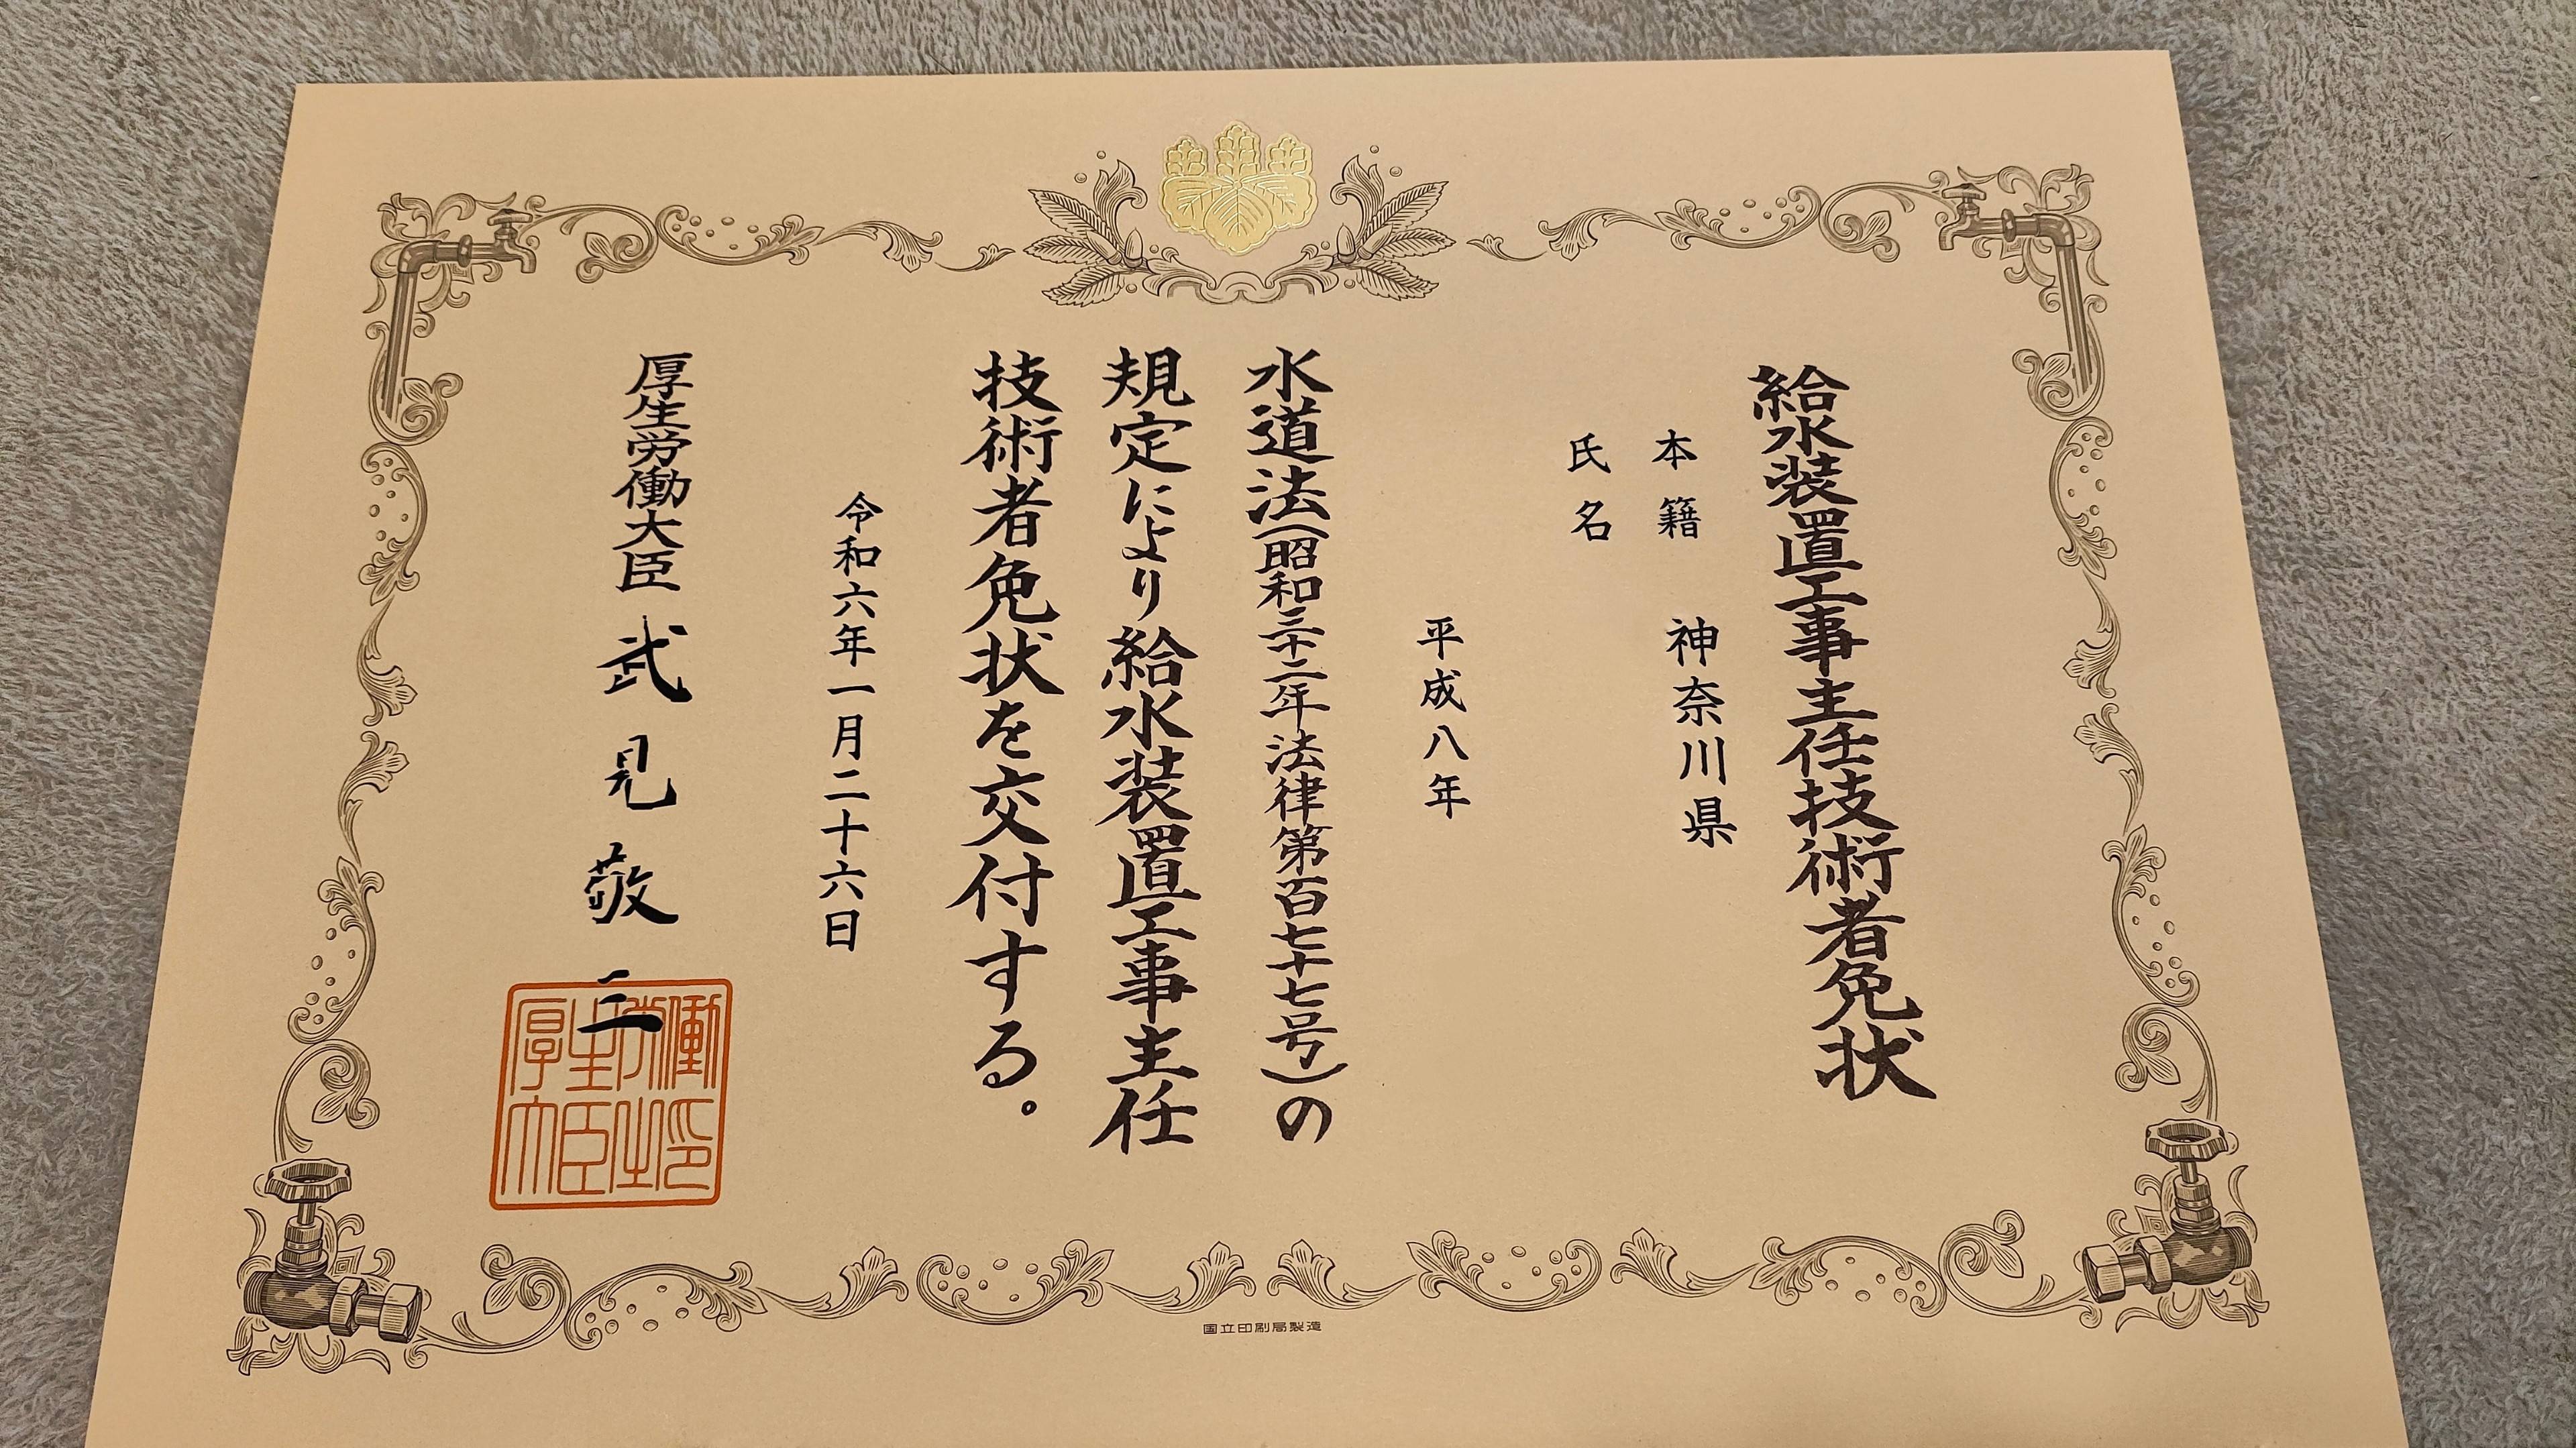 給水装置工事主任技術者免状
本籍 神奈川県
氏名
平成八年
水道法(昭和三十二年法律第百七十七号)の
規定により給水装置工事主任
技術者免状を交付する。
令和六年一月二十六日
厚生労働大臣 武見敬三
厚生労働
大臣之印
国立印刷局製造